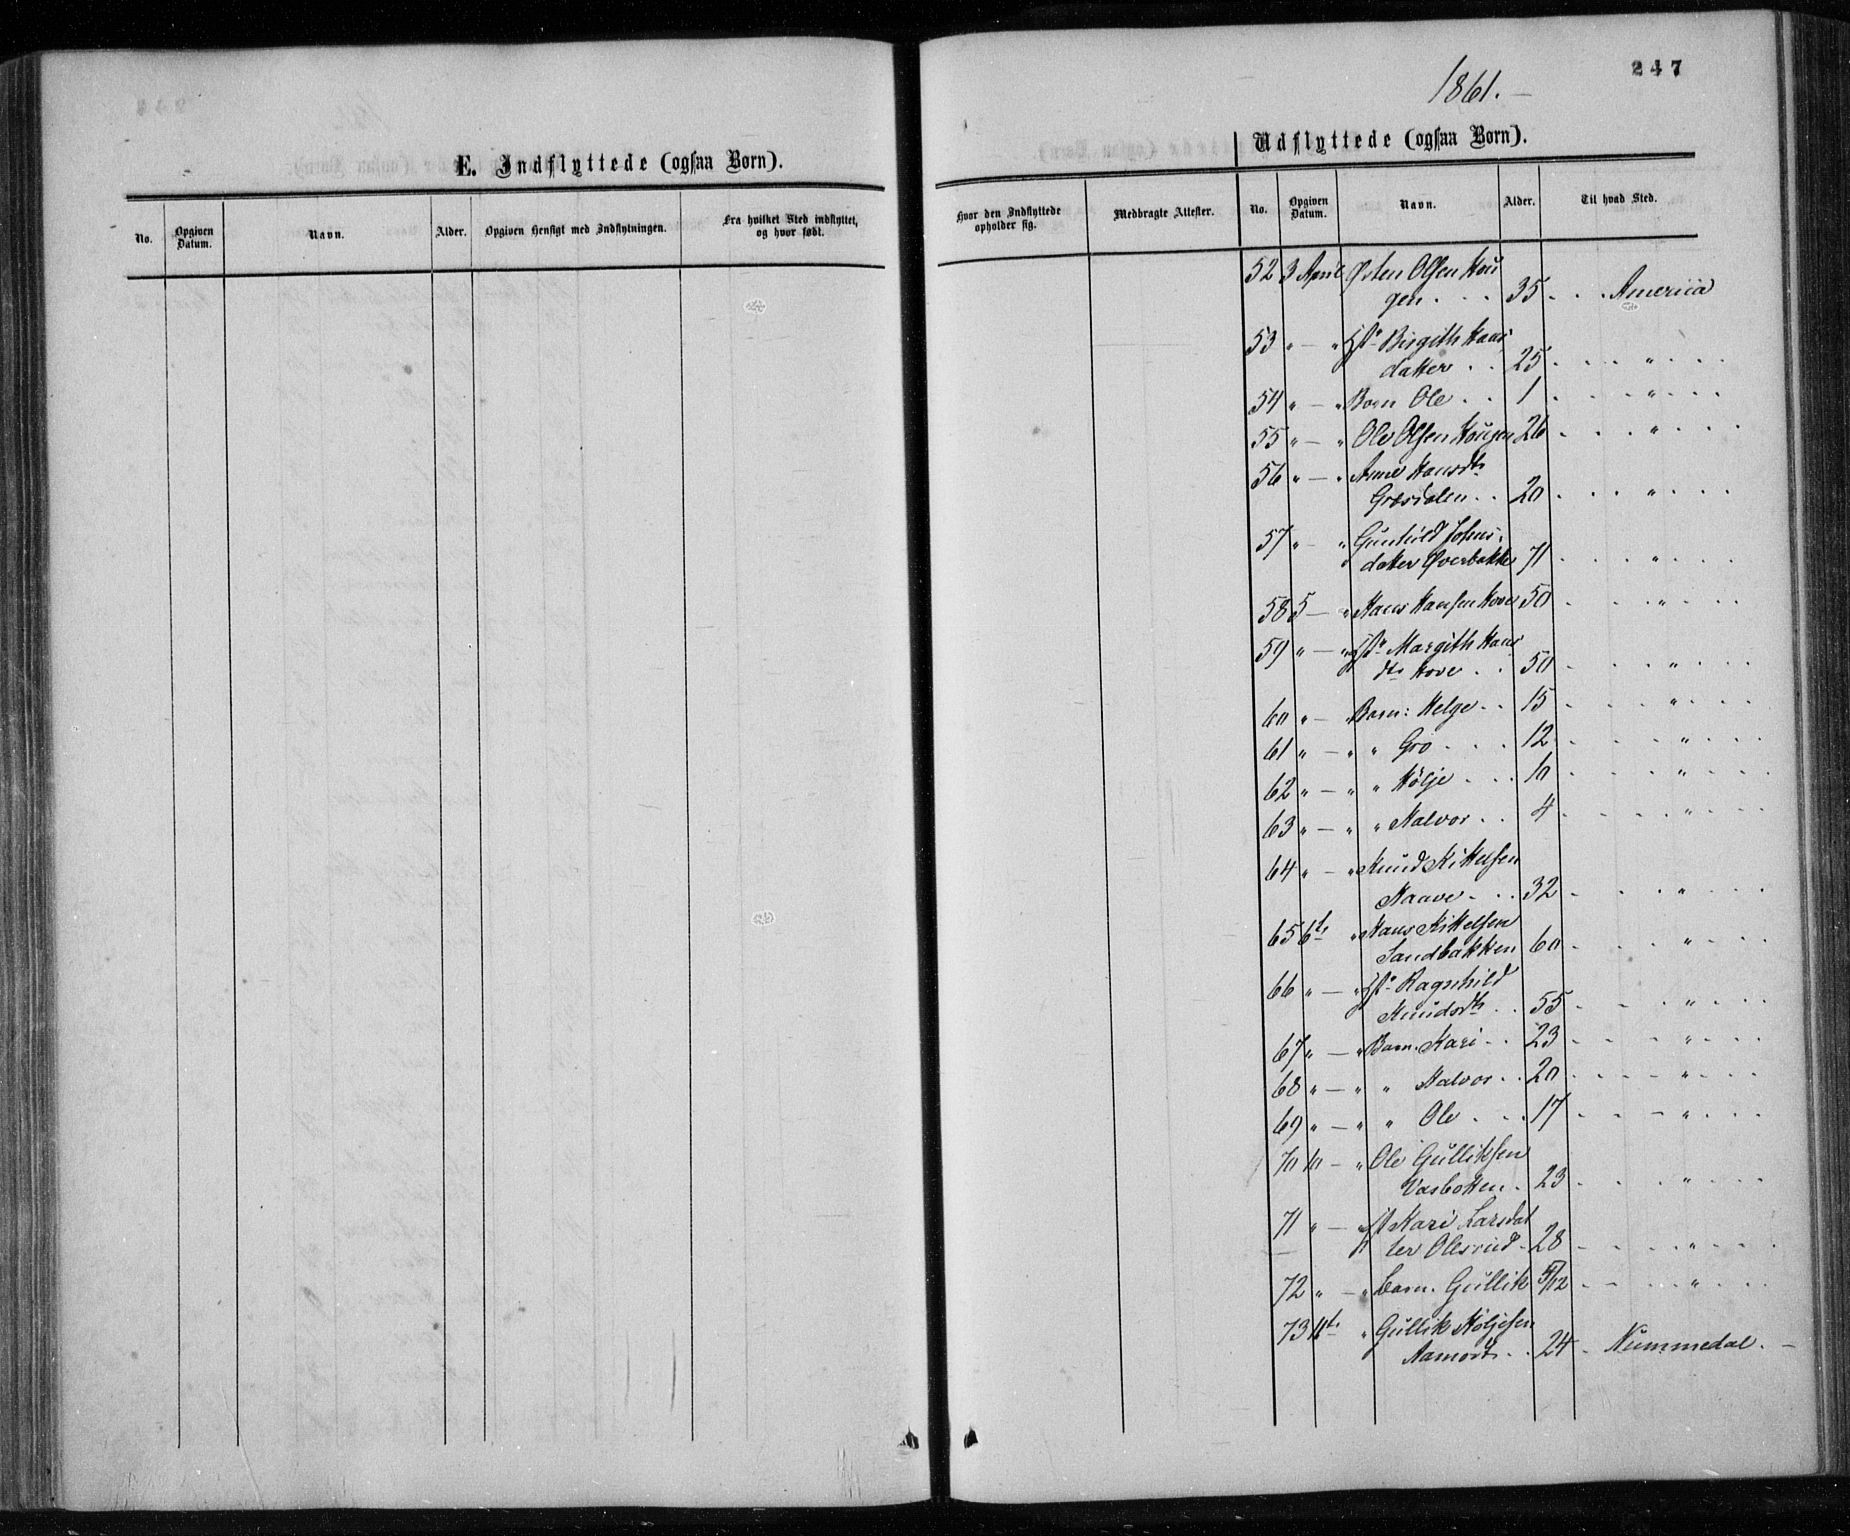 E. Indflyttede (ogsaa Børn).
No.
Opgiven Datum.
Navn.
Alder.
Opgiven Hensigt med Indflytningen.
Fra hvilket Sted indflyttet, og hvor født.
247
1861.
Udflyttede (ogsaa Børn).
Hvor den Indflyttede opholder sig.
Medbragte Attester.
No.
Opgiven Datum.
Navn.
Alder.
Til hvad Sted.
52 3 April Østen Olsen Hou
gen . . . 35 . . . America
53 " — " Hst. Birgith Hans
datter . . 25 . . . " . . .
54 " — " Barn Ole . . 1 . . . " . . .
55 " — " Ole Olsen Hougen 26 . . . " . . .
56 " — " Anne Hansdtr
Græsdalen . . 20 . . . " . . .
57 " — " Gunhild Johns
datter Øverbakke 71 . . . " . . .
58 5 — " Hans Hansen Hove 50 . . . " . . .
59 " — " Hst. Margith Hans
dtr Hove . . 50 . . . " . . .
60 " — Barn: Helge . . 15 . . . " . . .
61 " — " " Gro . . . 12 . . . " . . .
62 " — " " Hölje . . . 10 . . . " . . .
63 " — " " Halvor . . 4 . . . " . . .
64 " — " Knud Kittelsen
Haave . . . 32 . . . " . . .
65 6te " Hans Kittelsen
Sandbakken 60 . . . " . . .
66 " — " Hst. Ragnhild
Knudsdtr . . 55 . . . " . . .
67 " — " Barn. Kari . . 23 . . . " . . .
68 " — " " Halvor . . 20 . . . " . . .
69 " — " " Ole . . . 17 . . . " . . .
70 10 — " Ole Gulliksen
Vasbotten . 23 . . . " . . .
71 " — " Hst Kari Larsdat
ter Olesrud . 28 . . . " . . .
72 " — " barn. Gullik 5/12 . . . " . . .
73 11te " Gullik Höljesen
Aamodt . . 24 . Nummedal . —